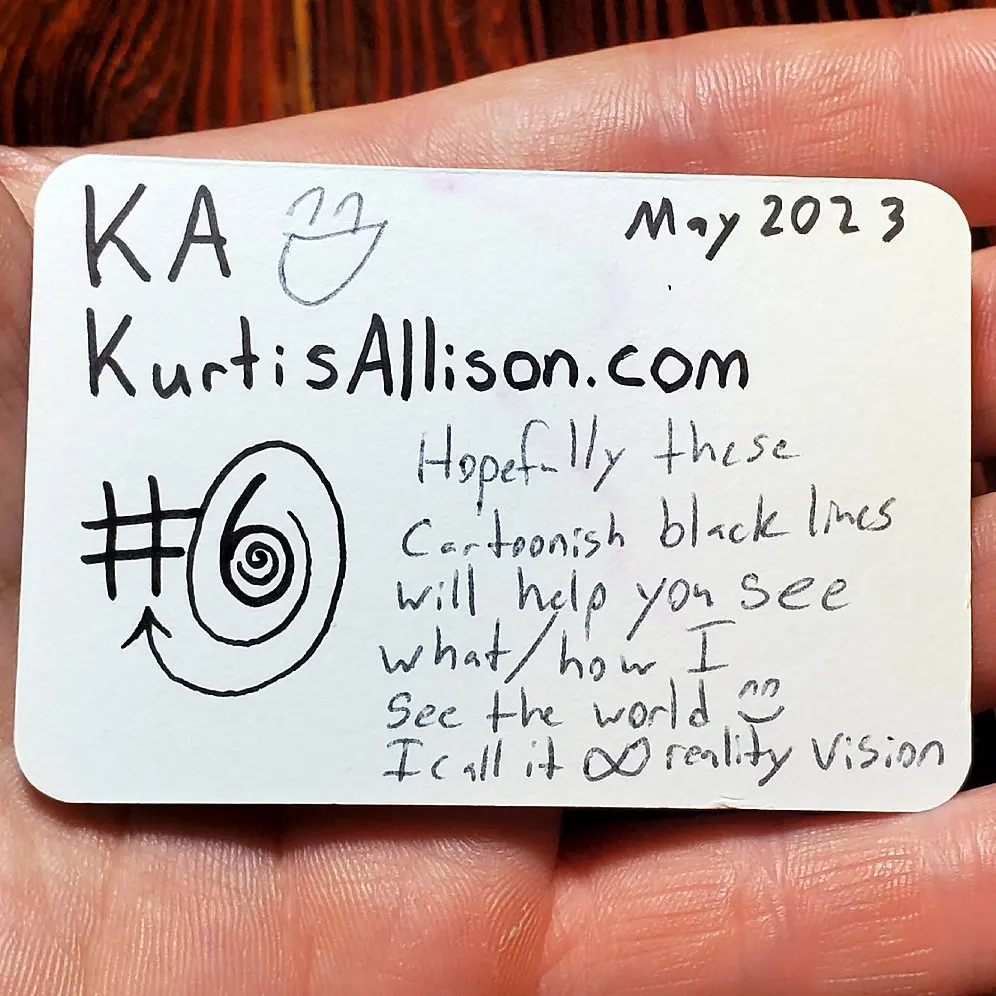 KA
May 2023
KurtisAllison.com
#6
Hopefully these
Cartoonish black lines
will help you see
what/how I
see the world
I call it ∞ reality vision